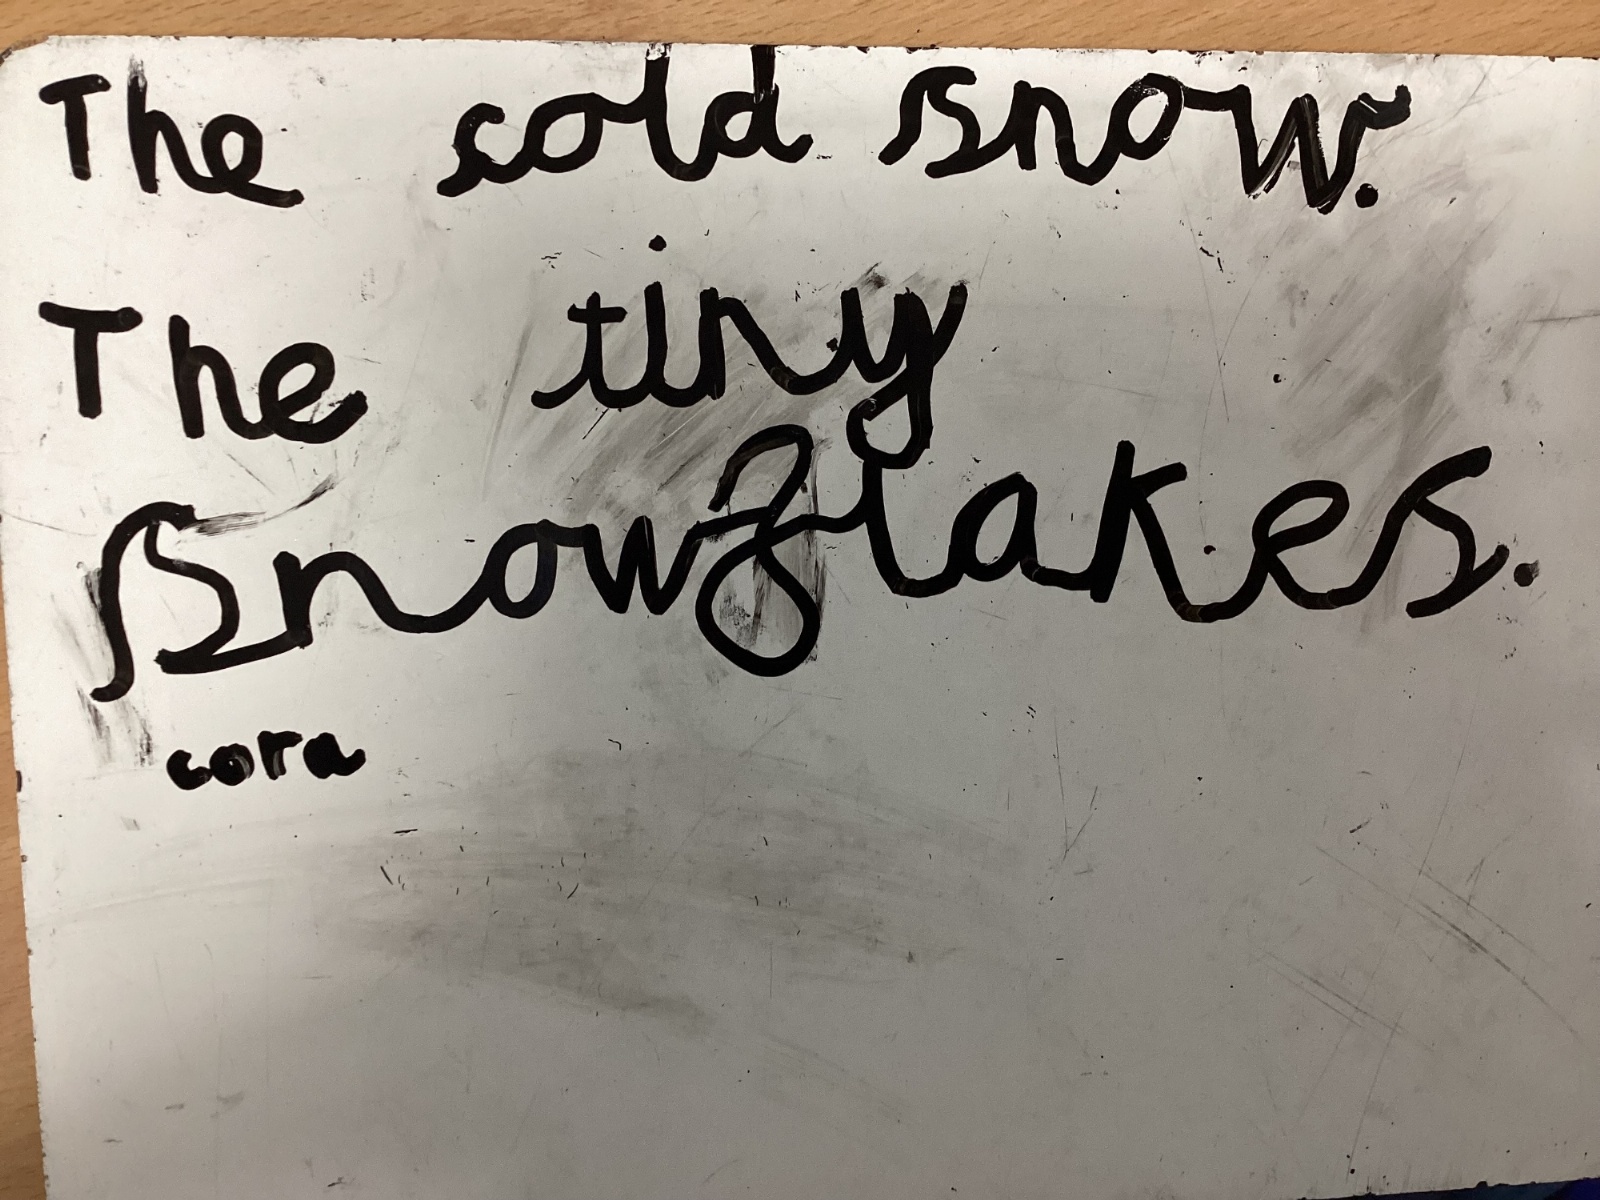 The cold snow.
The tiny
snowflakes.
cora